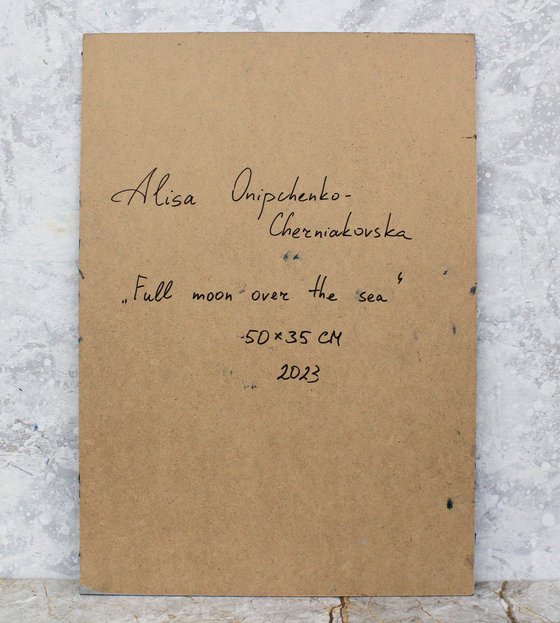 Alisa Onipchenko-
Cherniakovska
„Full moon over the sea“
50×35 CM
2023